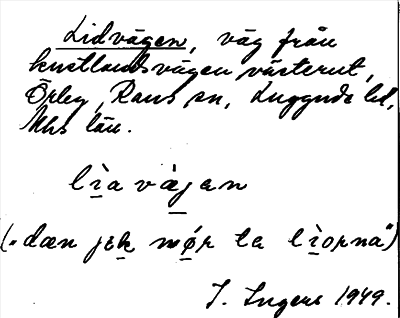 Lidvägen, väg från
kustlandsvägen västerut,
Örby, Raus sn, Luggude hd,
Mhs län.
lìa vàjen
("dæn jek mǿr te lìorna")
I. Ingers 1949.